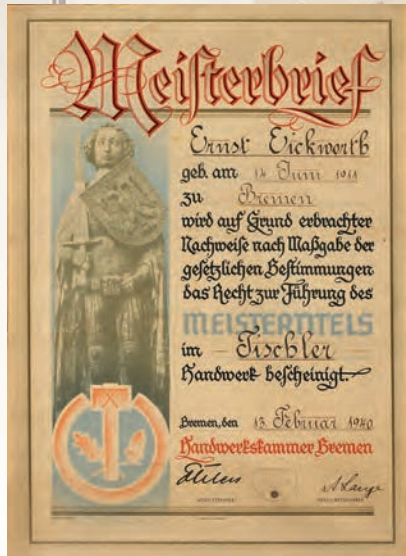 Meisterbrief
Ernst Eickworth
geb. am 14 Juni 1911
zu Bremen
wird auf Grund erbrachter
Nachweise nach Maßgabe der
gesetzlichen Bestimmungen
das Recht zur Führung des
MEISTERTITELS
im Tischler
Handwerk bescheinigt.
Bremen, den 13. Februar 1940
Handwerkskammer Bremen
A. Lange